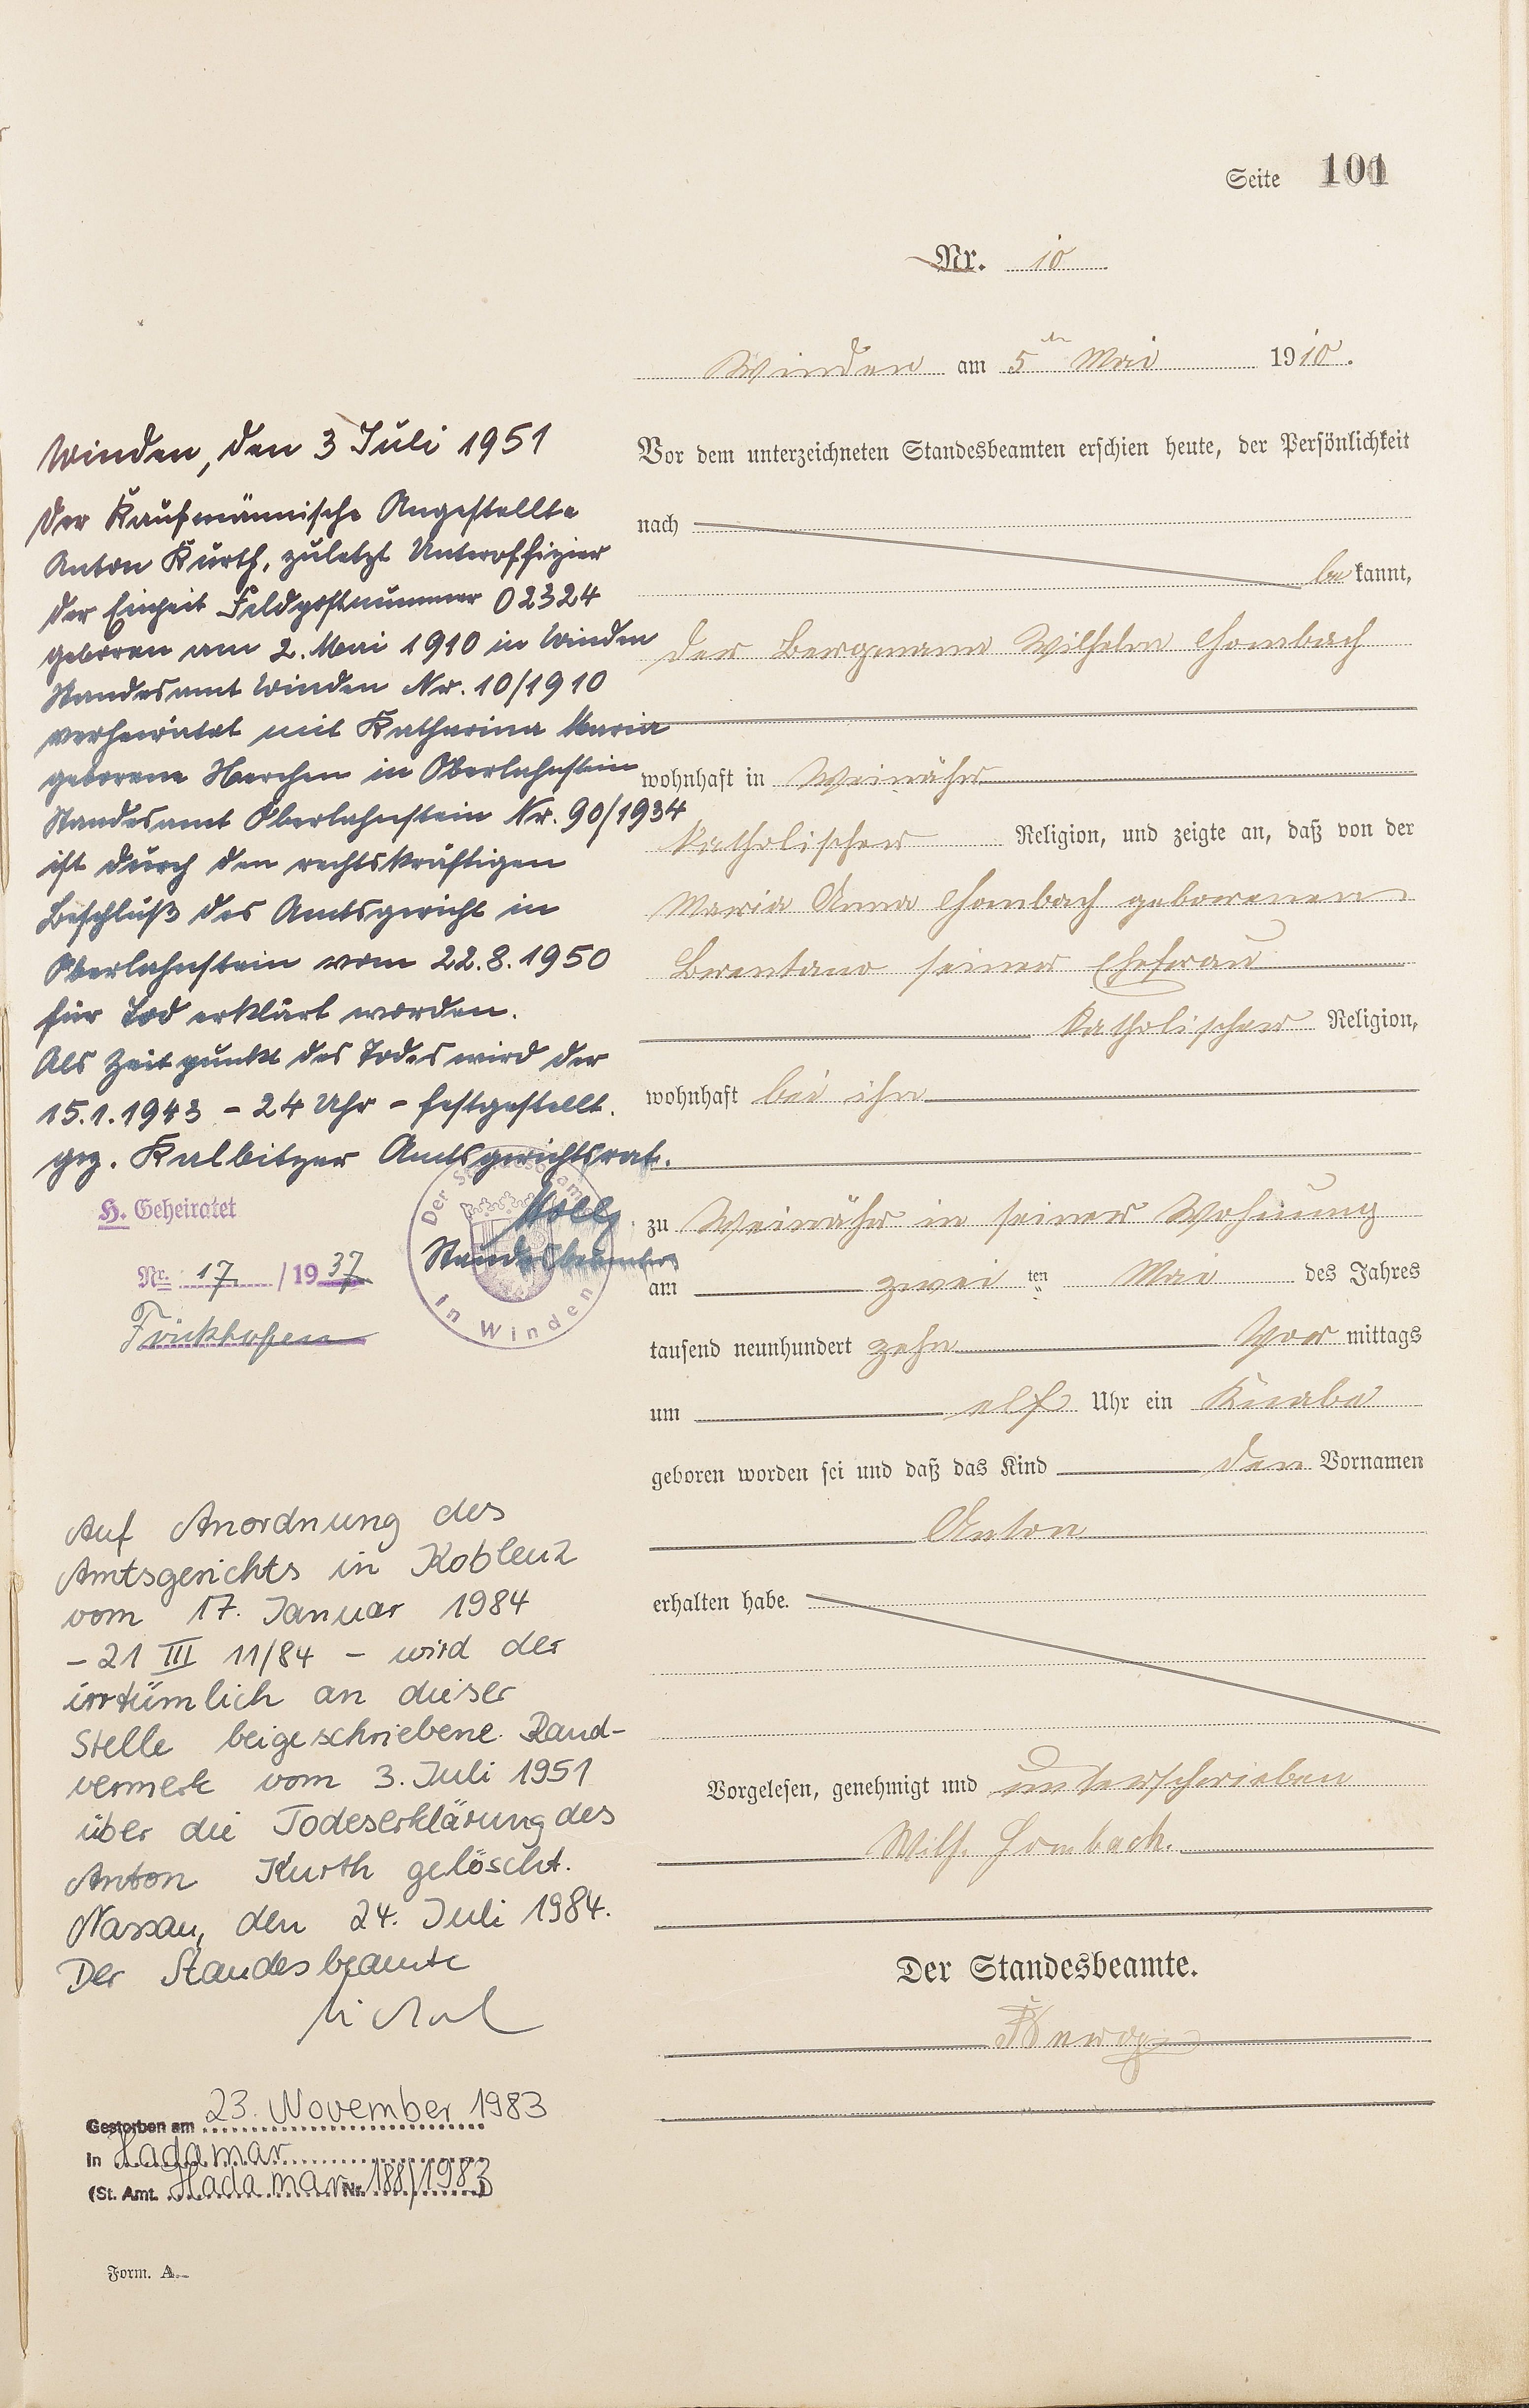 Seite 101
Nr. 10
Winden am 5ten Mai 1910.
Vor dem unterzeichneten Standesbeamten erschien heute, der Persönlichkeit
nach
be kannt,
der Bergmann Wilhelm Hombach
wohnhaft in Weinähr
katholischer Religion, und zeigte an, daß von der
Maria Anna Hombach geborenen
Brentano seiner Ehefrau
katholischer Religion,
wohnhaft bei ihm
zu Weinähr in seiner Wohnung
am zwei ten Mai des Jahres
tausend neunhundert zehn Vor mittags
um elf Uhr ein Knabe
geboren worden sei und daß das Kind den Vornamen
Anton
erhalten habe.
Vorgelesen, genehmigt und unterschrieben
Wilh. Hombach.
Der Standesbeamte.
Winden, den 3 Juli 1951
Der Kaufmännische Angestellte
Anton Kurth, zuletzt Unteroffizier
der Einheit Feldpostnummer 02324
geboren am 2. Mai 1910 in Winden
Standesamt Winden Nr. 10/1910
verheiratet mit Katharina Maria
geborene Herchen in Oberlahnstein
Standesamt Oberlahnstein Nr. 90/1934
ist durch den rechtskräftigen
Beschluß des Amtsgericht in
Oberlahnstein vom 22.8.1950
für Tod erklärt worden.
Als Zeitpunkt des Todes wird der
15.1.1943 - 24 Uhr - festgestellt.
gez. Kalbitzer Amtsgerichtsrat.
Standesbeamter
Der Standesbeamte
In Winden
H. Geheiratet
Nr. 17 / 1937
Frickhofen
Auf Anordnung des
Amtsgerichts in Koblenz
vom 17. Januar 1984
- 21 III 11/84 - wird der
irrtümlich an dieser
Stelle beigeschriebene Rand-
vermerk vom 3. Juli 1951
über die Todeserklärung des
Anton Kurth gelöscht.
Nassau, den 24. Juli 1984.
Der Standesbeamte
Gestorben am 23. November 1983
in Hadamar
(St. Amt. Hadamar Nr. 188/1983)
Form. A.